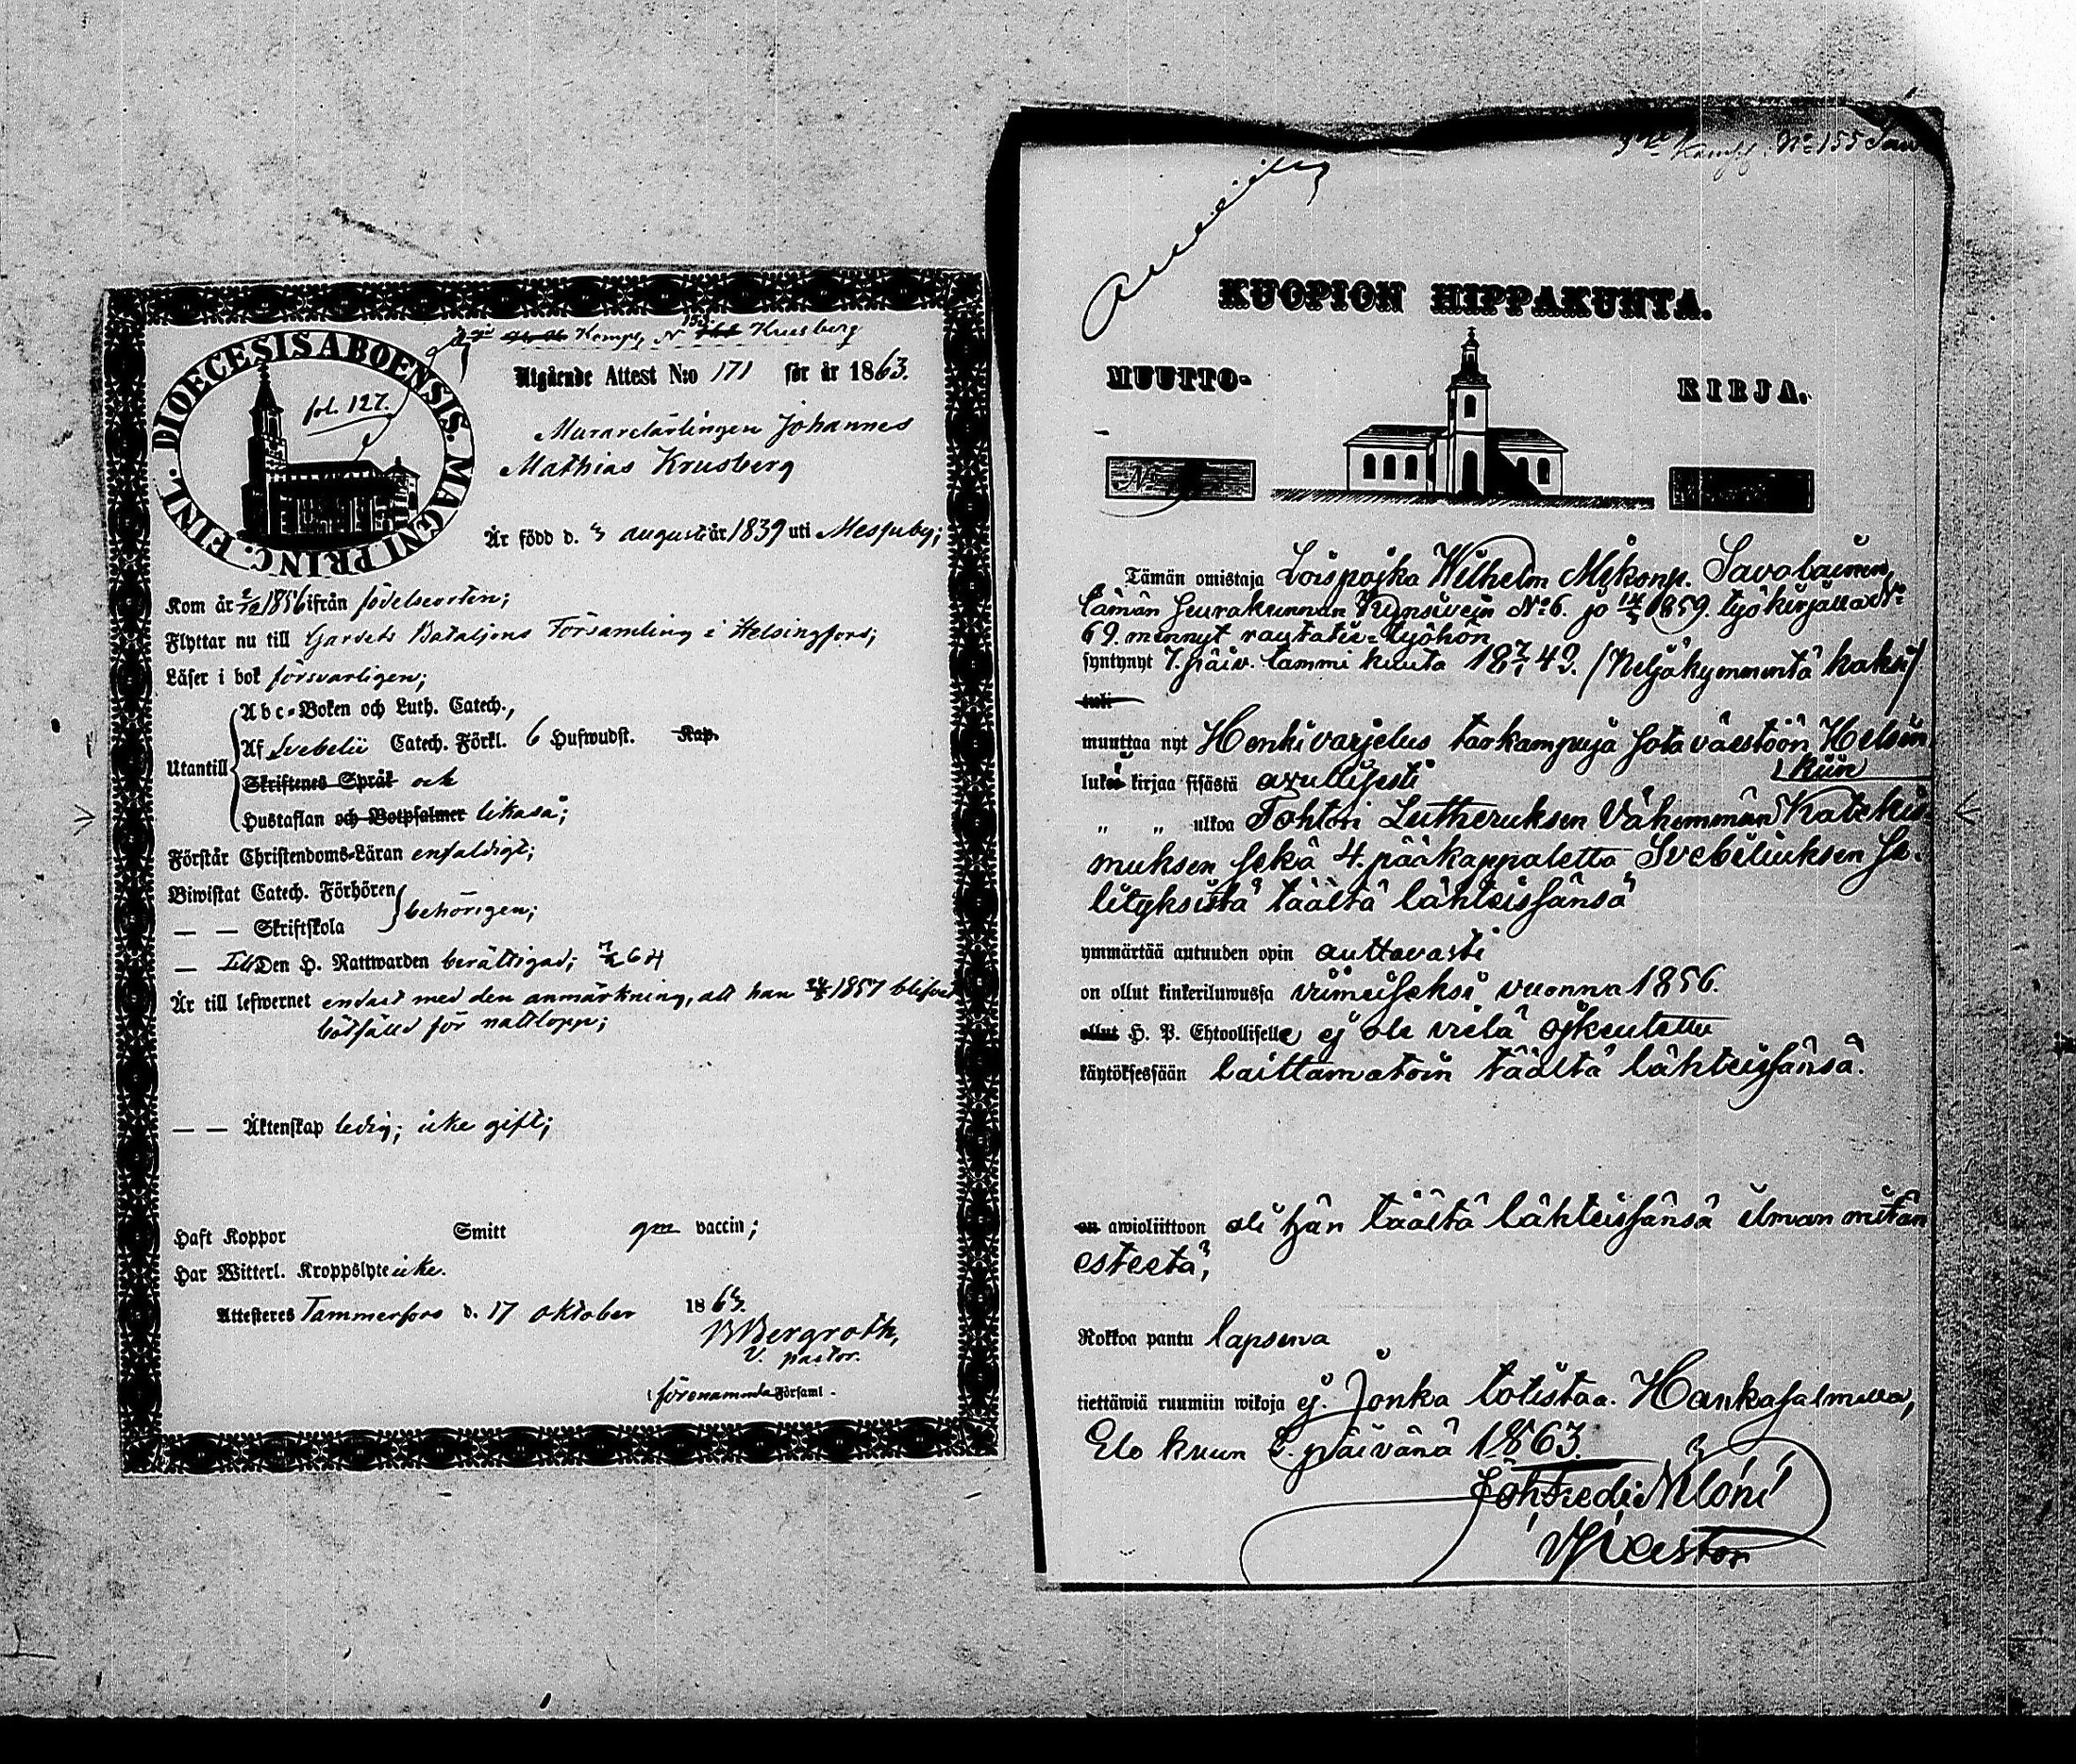 DIOECESIS ABOENSIS. MAGNI PRINC. FINL.
fol. 127.
Komp, N 153 Krusberg
Utgående Attest N:o 171 för år 1863.
Murarelärlingen Johannes
Mathias Krusberg
Är född d. 3 augusti år 1839 uti Messuby;
Kom år 1856 ifrån födelseorten;
Flyttar nu till Gardets Bataljons Församling i Helsingfors;
Läser i bok försvarligen;
Utantill
Abc-Boken och Luth. Catech.,
Af Svebelii Catech. Förkl. 6 Hufwudst. Kap.
Skriftenes Språk och
Hustaflan och Botpsalmer likaså;
Förstår Christendoms-Läran enfaldigt;
Biwistat Catech. Förhören
— — Skriftskola
behörigen;
— Till Den H. Nattwarden berättigad; 64
Är till lefwernet endast med den anmärkning, att han 1857 blifvit
bötfälld för nattlopp;
— — Äktenskap ledig; icke gift;
Haft Koppor Smitt gm vaccin;
Har Witterl. Kroppslyte icke.
Attesteres Tammerfors d. 17 oktober 1863.
Bergroth,
v. pastor.
i förenämnda Församl.
Komp: No 155 Sav
KUOPION HIPPAKUNTA.
MUUTTO-
KIRJA.
N
Tämän omistaja Loispojka Wilhelm Savolainen,
tämän seurakunnan No 6. jo 1859. työkirjalla No
69. mennyt rautatie-työhön
syntynyt 7. päiv. tammi kuuta 18 42. (Neljäkymmentä kaksi)
tuli
muuttaa nyt Henkivarjelus tarkampuja sota väestöön Helsin
kiin
lukee kirjaa sisästä avullisesti
„ „ ulkoa Tohtori Lutheruksen Vähemmän Katekis-
muksen sekä 4. pääkappaletta Svebeliuksen Se-
lityksistä täältä lähteissänsä
ymmärtää autuuden opin auttavasti
on ollut kinkeriluwussa viimeiseksi vuonna 1856.
ollut H. P. Ehtoollisella ej ole vielä ojkeutettu
käytöksessään laittamatoin täältä lähteissänsä.
on awioliittoon oli hän täältä lähteissänsä ilman mitän
esteetä;
Rokkoa pantu lapsena
tiettäwiä ruumiin wikoja ej. Jonka totistaa. Hankasalmella,
Elo kuun päivänä 1863.
Pastor